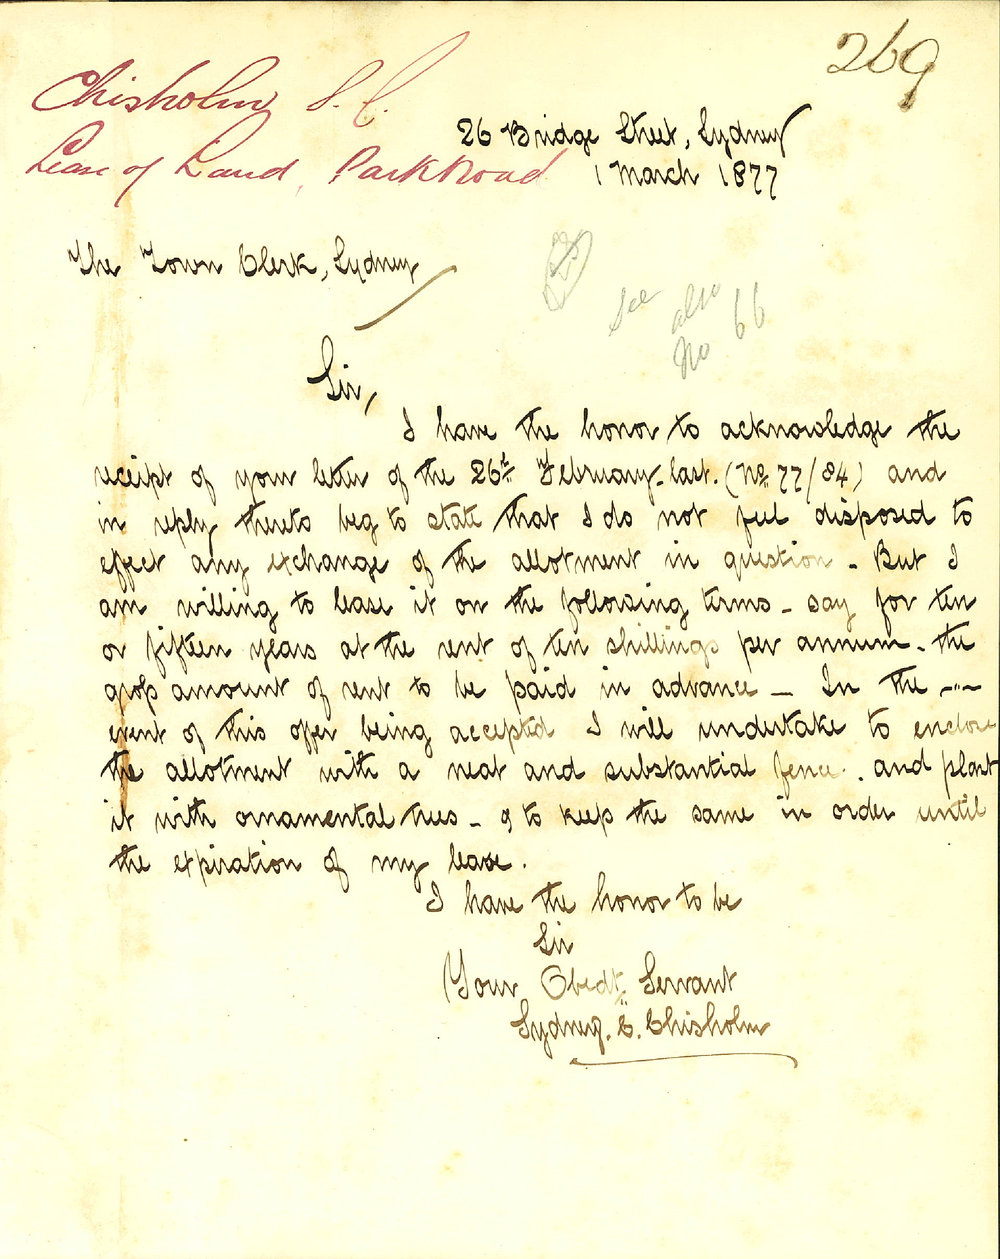 269
Chisholm S. C.
Lease of Land, Park Road
26 Bridge Street, Sydney
1 March 1877
The Town Clerk, Sydney
See also No 66
Sir,
I have the honor to acknowledge the
receipt of your letter of the 26th February last. (No. 77/84) and
in reply thereto beg to state that I do not feel disposed to
effect any exchange of the allotment in question - But I
am willing to lease it on the following terms - say for ten
or fifteen years at the rent of ten shillings per annum - the
gross amount of rent to be paid in advance - In the -"-
event of this offer being accepted I will undertake to enclose
the allotment with a neat and substantial fence . and plant
it with ornamental trees - & to keep the same in order until
the expiration of my lease .
I have the honor to be
Sir
Your Obedt. Servant
Sydney. C. Chisholm